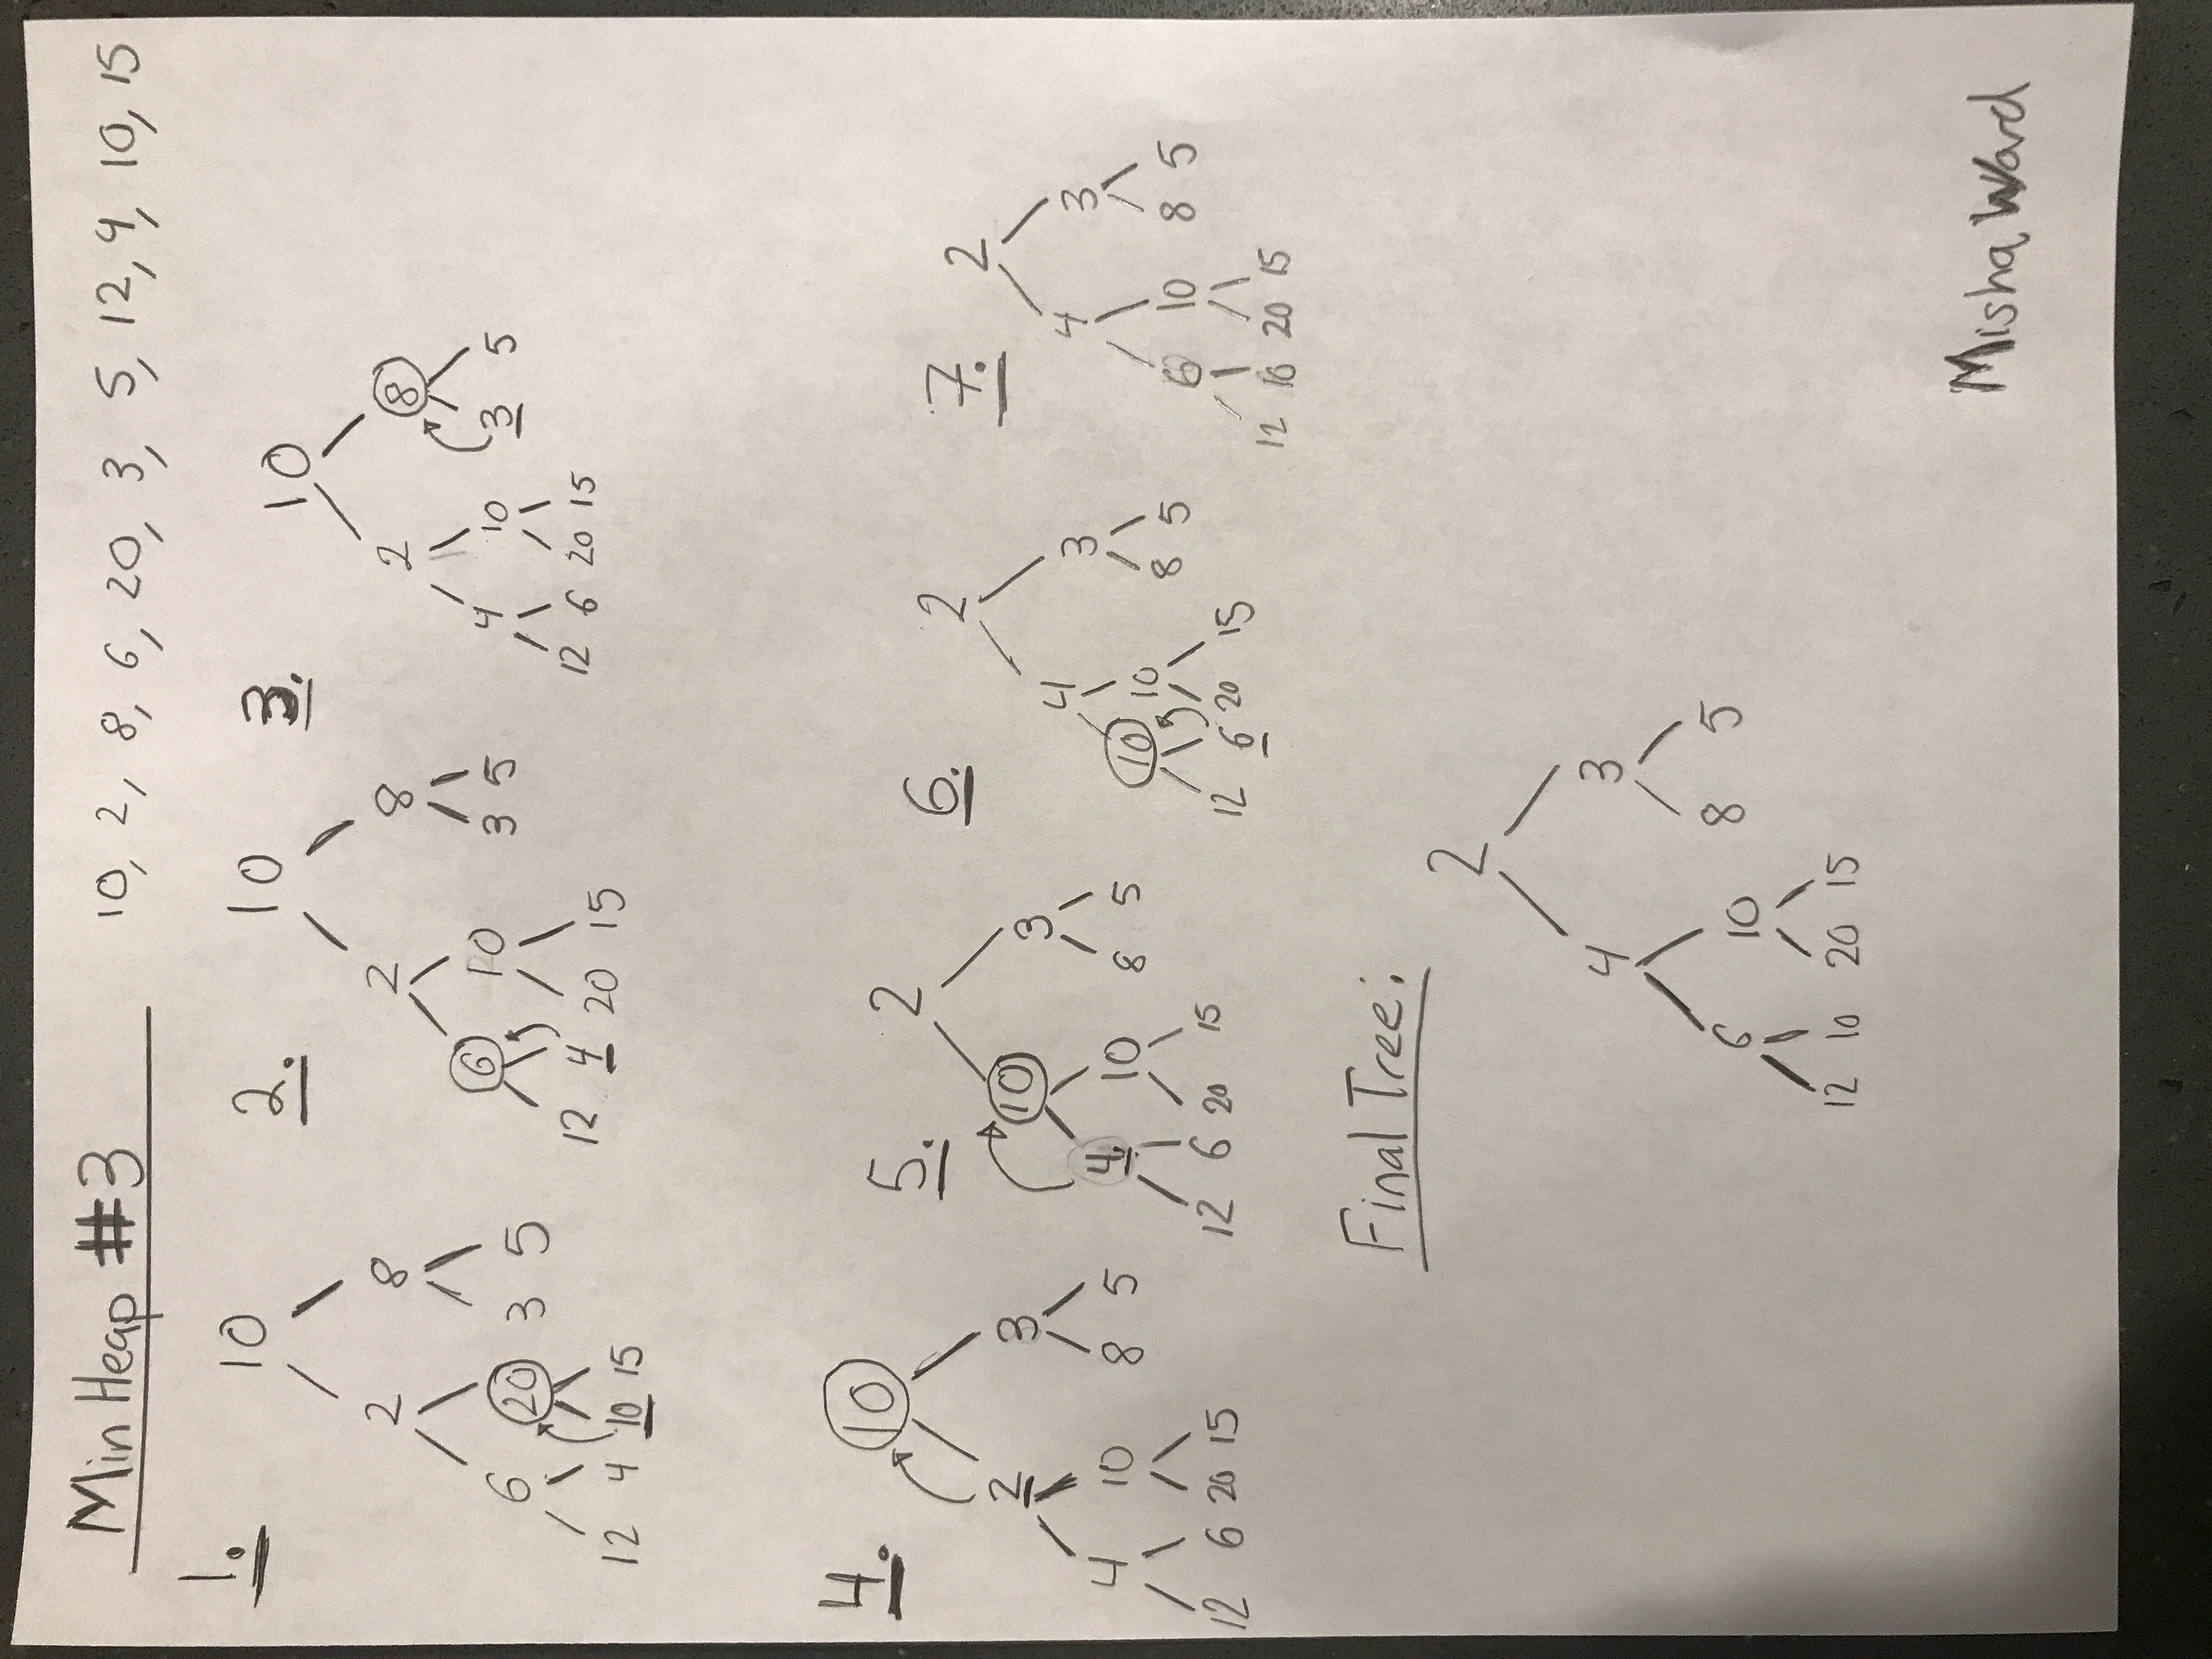 Min Heap #3
10, 2, 8, 6, 20, 3, 5, 12, 4, 10, 15
1.
10
2 8
6 20 3 5
12 4 10 15
2.
10
2 8
6 10 3 5
12 4 20 15
3.
10
2 8
4 10 3 5
12 6 20 15
4.
10
2 3
4 10 8 5
12 6 20 15
5.
2
10 3
4 10 8 5
12 6 20 15
6.
2
4 3
10 10 8 5
12 6 20 15
7.
2
4 3
6 10 8 5
12 10 20 15
Final Tree:
2
4 3
6 10 8 5
12 10 20 15
Misha Ward